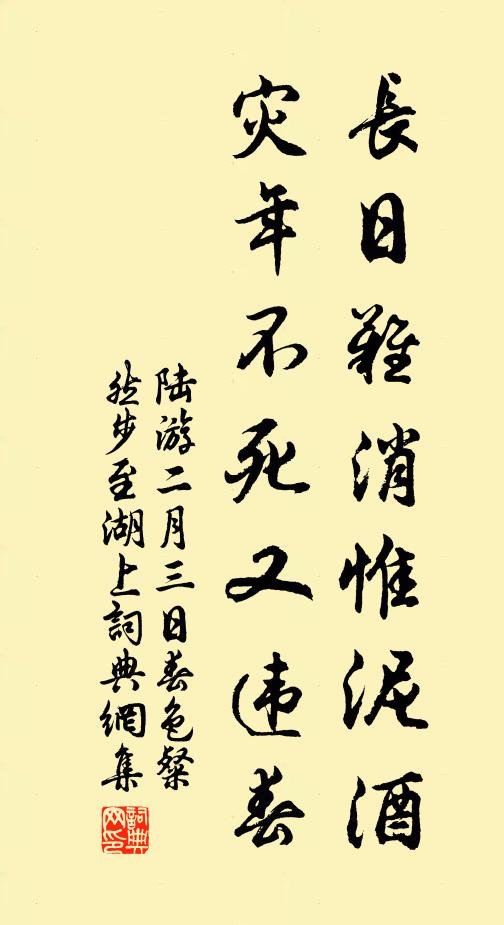 長日難消惟泥酒
灾年不死又违春
陆游二月三日春色粲
然步至湖上詞典網集
詞典网印